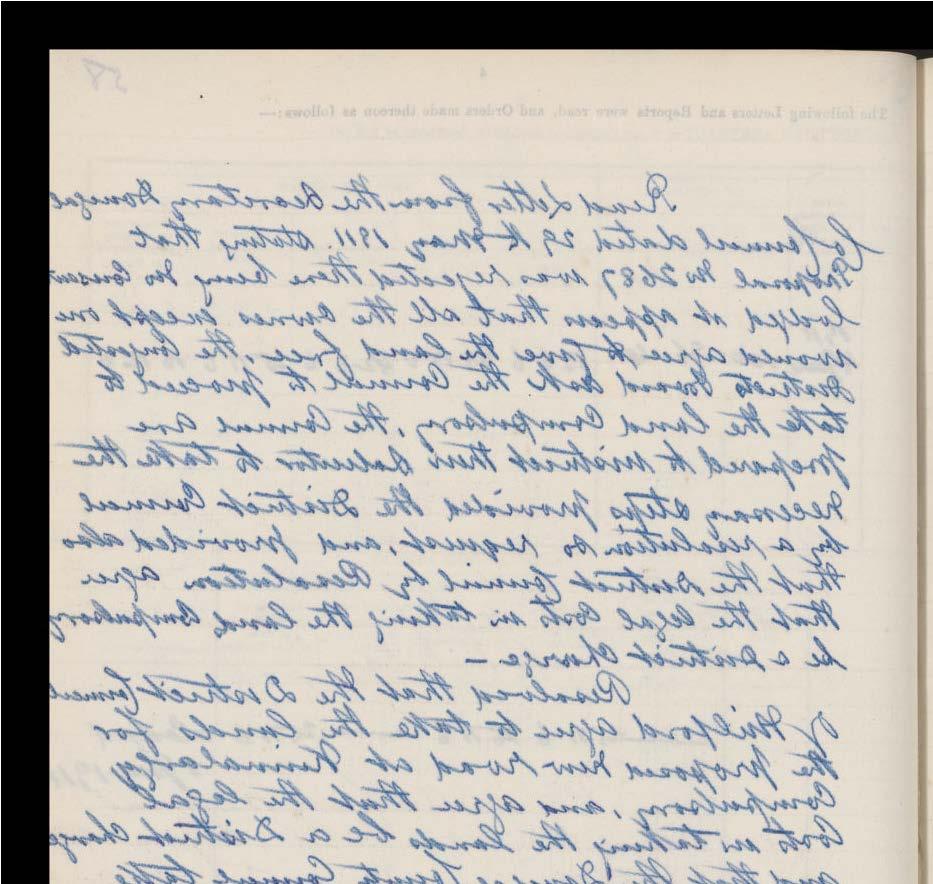 58
4
The following Letters and Reports were read, and Orders made thereon as follows:—
Read Letter from the Secretary Donegal
Co Council dated 29th May 1911. Stating that
Proposal No 2687 was rejected there being no Consent
lodged it appears that all the owners except one
woman agree to give the land free, the Congested
Districts Board ask the Council to proceed to
take the land Compulsory, the Council are
prepared to instruct their Solicitor to take the
necessary steps provided the District Council
by a resolution so request, and provided also
that the District Council by Resolution agree
that the legal Costs in taking the land Compulsory
be a District Charge —
Resolved that the District Council
of Milford agree to take the lands for
the proposed new road at
Compulsory, and agree that the legal
Costs in taking the lands be a District Charge
and that the Donegal County Council take